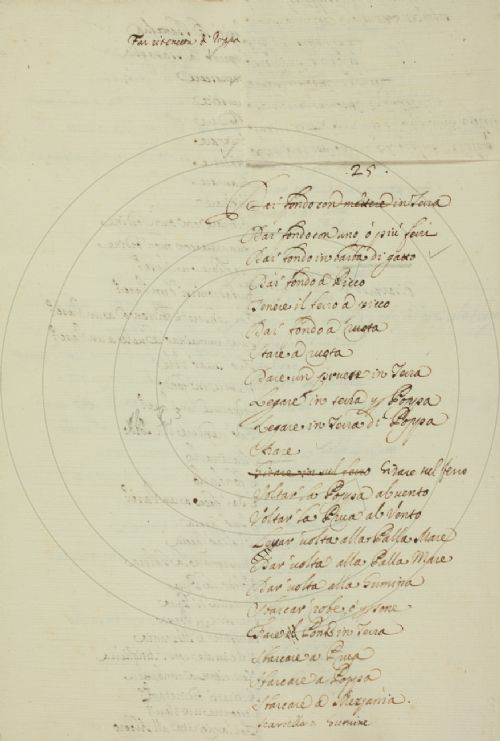 Far ritenuta di Poppa
25.
Dar fondo con mettere in Terra
Dar fondo con uno, o più ferri
Dar fondo in barba di gatto
Dar fondo a Picco
Tenere il ferro a picco
Dar fondo a ruota
Stare a ruota
Dare un provese in Terra
Legare in terra p Poppa
Legare in Terra di Poppa
Girare sul ferro
Voltar la Poppa al vento
Voltar la Prua al Vento
Levar volta alla Palla Mare
Dar volta alla Palla Mare
Dar volta alla Gumina
Sbarcar robe, o psone
Fare il Ponte in Terra
Sbarcare a Prua
Sbarcare a Poppa
Sbarcare a Mezzania.